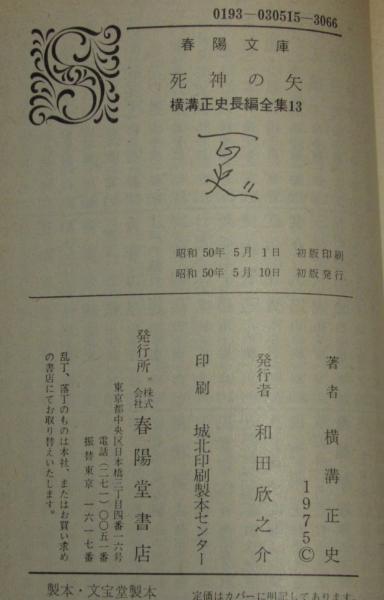 0193-030515-3066
春陽文庫
死神の矢
横溝正史長編全集13
正史
昭和50年5月1日 初版印刷
昭和50年5月10日 初版発行
著者 横溝正史
1975©
発行者 和田欣之介
印刷 城北印刷製本センター
発行所 株式会社 春陽堂書店
東京都中央区日本橋三丁目四番一六号
電話(二七一)〇〇五一番
振替東京一六一七番
乱丁、落丁のものは本社、またはお買い求め
の書店にてお取り替えいたします。
製本・文宝堂製本
定価はカバーに明記してあります。